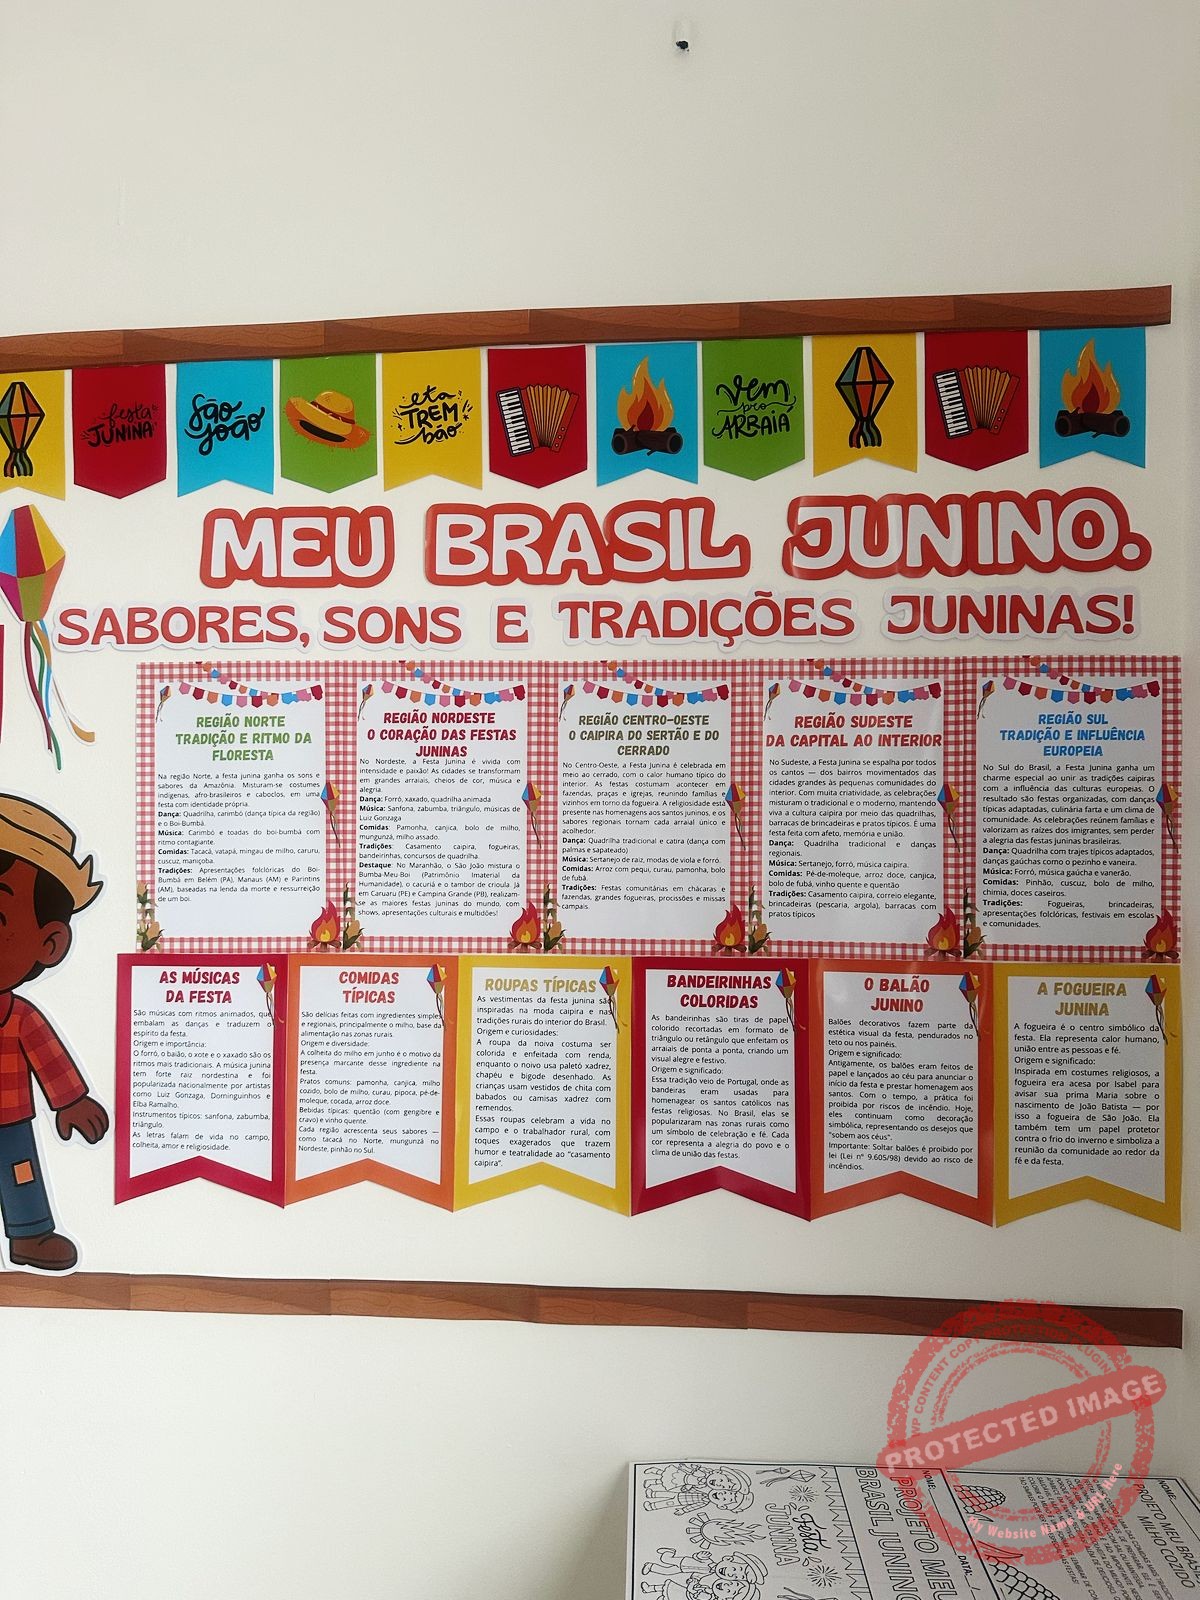 festa
JUNINA
São
João
eta
TREM
bão
vem
pro
ARRAIÁ
MEU BRASIL JUNINO.
SABORES, SONS E TRADIÇÕES JUNINAS!
REGIÃO NORTE
TRADIÇÃO E RITMO DA
FLORESTA
Na região Norte, a festa junina ganha os sons e
sabores da Amazônia. Misturam-se costumes
indígenas, afro-brasileiros e caboclos, em uma
festa com identidade própria.
Dança: Quadrilha, carimbó (dança típica da região)
e o Boi-Bumbá.
Música: Carimbó e toadas do boi-bumbá com
ritmo contagiante.
Comidas: Tacacá, vatapá, mingau de milho, caruru,
cuscuz, maniçoba.
Tradições: Apresentações folclóricas do Boi-
Bumbá em Belém (PA), Manaus (AM) e Parintins
(AM), baseadas na lenda da morte e ressurreição
de um boi.
REGIÃO NORDESTE
O CORAÇÃO DAS FESTAS
JUNINAS
No Nordeste, a Festa Junina é vivida com
intensidade e paixão! As cidades se transformam
em grandes arraiais, cheios de cor, música e
alegria.
Dança: Forró, xaxado, quadrilha animada
Música: Sanfona, zabumba, triângulo, músicas de
Luiz Gonzaga
Comidas: Pamonha, canjica, bolo de milho,
mungunzá, milho assado.
Tradições: Casamento caipira, fogueiras,
bandeirinhas, concursos de quadrilha.
Destaque: No Maranhão, o São João mistura o
Bumba-Meu-Boi (Patrimônio Imaterial da
Humanidade), o cacuriá e o tambor de crioula. Já
em Caruaru (PE) e Campina Grande (PB), realizam-
se as maiores festas juninas do mundo, com
shows, apresentações culturais e multidões!
REGIÃO CENTRO-OESTE
O CAIPIRA DO SERTÃO E DO
CERRADO
No Centro-Oeste, a Festa Junina é celebrada em
meio ao cerrado, com o calor humano típico do
interior. As festas costumam acontecer em
fazendas, praças e igrejas, reunindo famílias e
vizinhos em torno da fogueira. A religiosidade está
presente nas homenagens aos santos juninos, e os
sabores regionais tornam cada arraial único e
acolhedor.
Dança: Quadrilha tradicional e catira (dança com
palmas e sapateado)
Música: Sertanejo de raiz, modas de viola e forró.
Comidas: Arroz com pequi, curau, pamonha, bolo
de fubá
Tradições: Festas comunitárias em chácaras e
fazendas, grandes fogueiras, procissões e missas
campais.
REGIÃO SUDESTE
DA CAPITAL AO INTERIOR
No Sudeste, a Festa Junina se espalha por todos
os cantos — dos bairros movimentados das
cidades grandes às pequenas comunidades do
interior. Com muita criatividade, as celebrações
misturam o tradicional e o moderno, mantendo
viva a cultura caipira por meio das quadrilhas,
barracas de brincadeiras e pratos típicos. É uma
festa feita com afeto, memória e união.
Dança: Quadrilha tradicional e danças
regionais.
Música: Sertanejo, forró, música caipira.
Comidas: Pé-de-moleque, arroz doce, canjica,
bolo de fubá, vinho quente e quentão
Tradições: Casamento caipira, correio elegante,
brincadeiras (pescaria, argola), barracas com
pratos típicos
REGIÃO SUL
TRADIÇÃO E INFLUÊNCIA
EUROPEIA
No Sul do Brasil, a Festa Junina ganha um
charme especial ao unir as tradições caipiras
com a influência das culturas europeias. O
resultado são festas organizadas, com danças
típicas adaptadas, culinária farta e um clima de
comunidade. As celebrações reúnem famílias e
valorizam as raízes dos imigrantes, sem perder
a alegria das festas juninas brasileiras.
Dança: Quadrilha com trajes típicos adaptados,
danças gaúchas como o pezinho e vaneira.
Música: Forró, música gaúcha e vanerão.
Comidas: Pinhão, cuscuz, bolo de milho,
chimia, doces caseiros.
Tradições: Fogueiras, brincadeiras,
apresentações folclóricas, festivais em escolas
e comunidades.
AS MÚSICAS
DA FESTA
São músicas com ritmos animados, que
embalam as danças e traduzem o
espírito da festa.
Origem e importância:
O forró, o baião, o xote e o xaxado são os
ritmos mais tradicionais. A música junina
tem forte raiz nordestina e foi
popularizada nacionalmente por artistas
como Luiz Gonzaga, Dominguinhos e
Elba Ramalho.
Instrumentos típicos: sanfona, zabumba,
triângulo.
As letras falam de vida no campo,
colheita, amor e religiosidade.
COMIDAS
TÍPICAS
São delícias feitas com ingredientes simples
e regionais, principalmente o milho, base da
alimentação nas zonas rurais.
Origem e diversidade:
A colheita do milho em junho é o motivo da
presença marcante desse ingrediente na
festa.
Pratos comuns: pamonha, canjica, milho
cozido, bolo de milho, curau, pipoca, pé-de-
moleque, cocada, arroz doce.
Bebidas típicas: quentão (com gengibre e
cravo) e vinho quente.
Cada região acrescenta seus sabores —
como tacacá no Norte, mungunzá no
Nordeste, pinhão no Sul.
ROUPAS TÍPICAS
As vestimentas da festa junina são
inspiradas na moda caipira e nas
tradições rurais do interior do Brasil.
Origem e curiosidades:
A roupa da noiva costuma ser
colorida e enfeitada com renda,
enquanto o noivo usa paletó xadrez,
chapéu e bigode desenhado. As
crianças usam vestidos de chita com
babados ou camisas xadrez com
remendos.
Essas roupas celebram a vida no
campo e o trabalhador rural, com
toques exagerados que trazem
humor e teatralidade ao "casamento
caipira".
BANDEIRINHAS
COLORIDAS
As bandeirinhas são tiras de papel
colorido recortadas em formato de
triângulo ou retângulo que enfeitam os
arraiais de ponta a ponta, criando um
visual alegre e festivo.
Origem e significado:
Essa tradição veio de Portugal, onde as
bandeiras eram usadas para
homenagear os santos católicos nas
festas religiosas. No Brasil, elas se
popularizaram nas zonas rurais como
um símbolo de celebração e fé. Cada
cor representa a alegria do povo e o
clima de união das festas.
O BALÃO
JUNINO
Balões decorativos fazem parte da
estética visual da festa, pendurados no
teto ou nos painéis.
Origem e significado:
Antigamente, os balões eram feitos de
papel e lançados ao céu para anunciar o
início da festa e prestar homenagem aos
santos. Com o tempo, a prática foi
proibida por riscos de incêndio. Hoje,
eles continuam como decoração
simbólica, representando os desejos que
"sobem aos céus".
Importante: Soltar balões é proibido por
lei (Lei nº 9.605/98) devido ao risco de
incêndios.
A FOGUEIRA
JUNINA
A fogueira é o centro simbólico da
festa. Ela representa calor humano,
união entre as pessoas e fé.
Origem e significado:
Inspirada em costumes religiosos, a
fogueira era acesa por Isabel para
avisar sua prima Maria sobre o
nascimento de João Batista — por
isso a fogueira de São João. Ela
também tem um papel protetor
contra o frio do inverno e simboliza a
reunião da comunidade ao redor da
fé e da festa.
WP CONTENT COPY PROTECTION PLUGIN
PROTECTED IMAGE
My Website Name & URL Here
NOME:
PROJETO MEU
BRASIL JUNINO
Festa
JUNINA
DATA:
NOME:
PROJETO MEU BRASIL
MILHO COZIDO